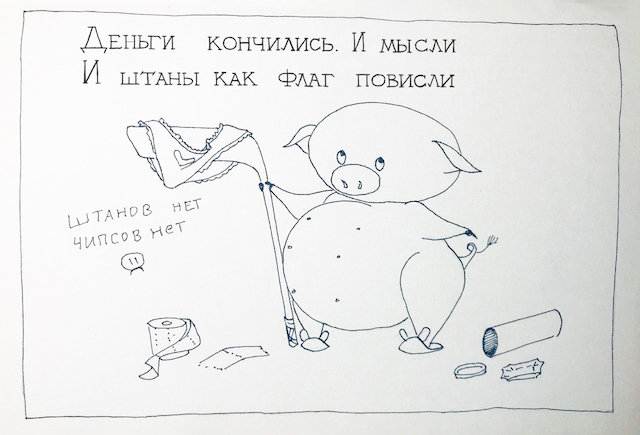 Деньги кончились. И мысли
И штаны как флаг повисли
штанов нет
чипсов нет